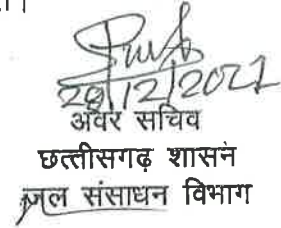 28/12/2021
अवर सचिव
छत्तीसगढ़ शासन
जल संसाधन विभाग